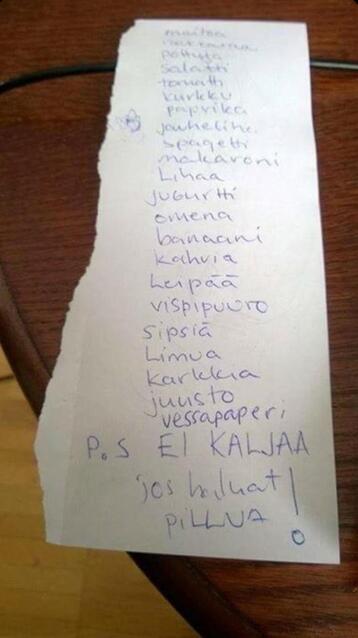 maitoa
pottuja
salatti
tomatti
kurkku
paprika
jauheliha
spagetti
makaroni
Lihaa
jugurtti
omena
banaani
kahvia
leipää
vispipuuro
sipsiä
Limua
karkkia
juusto
vessapaperi
P.S EI KALJAA
jos haluat
PiLLUA !